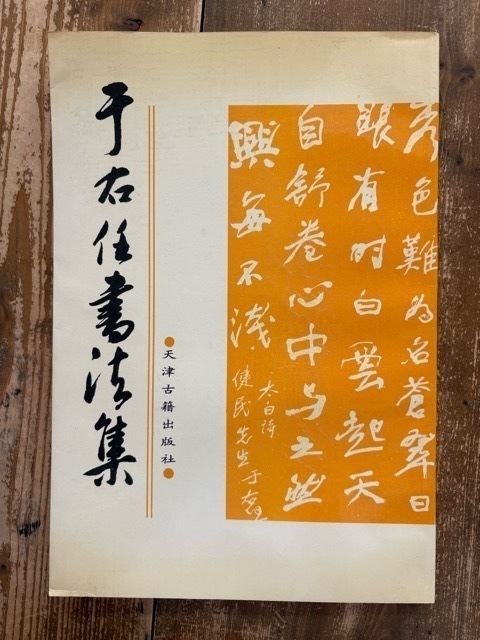 于右任書法集
●天津古籍出版社●
秀色難为名蒼翠日
眼有时白雲起天
自舒卷心中与之然
興每不淺
太白诗
健民先生于右任